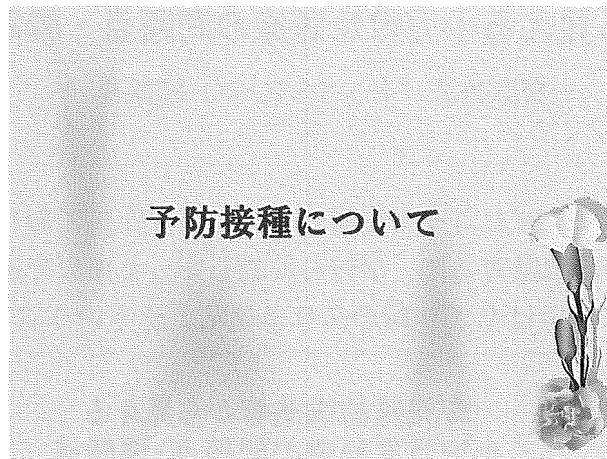 予防接種について